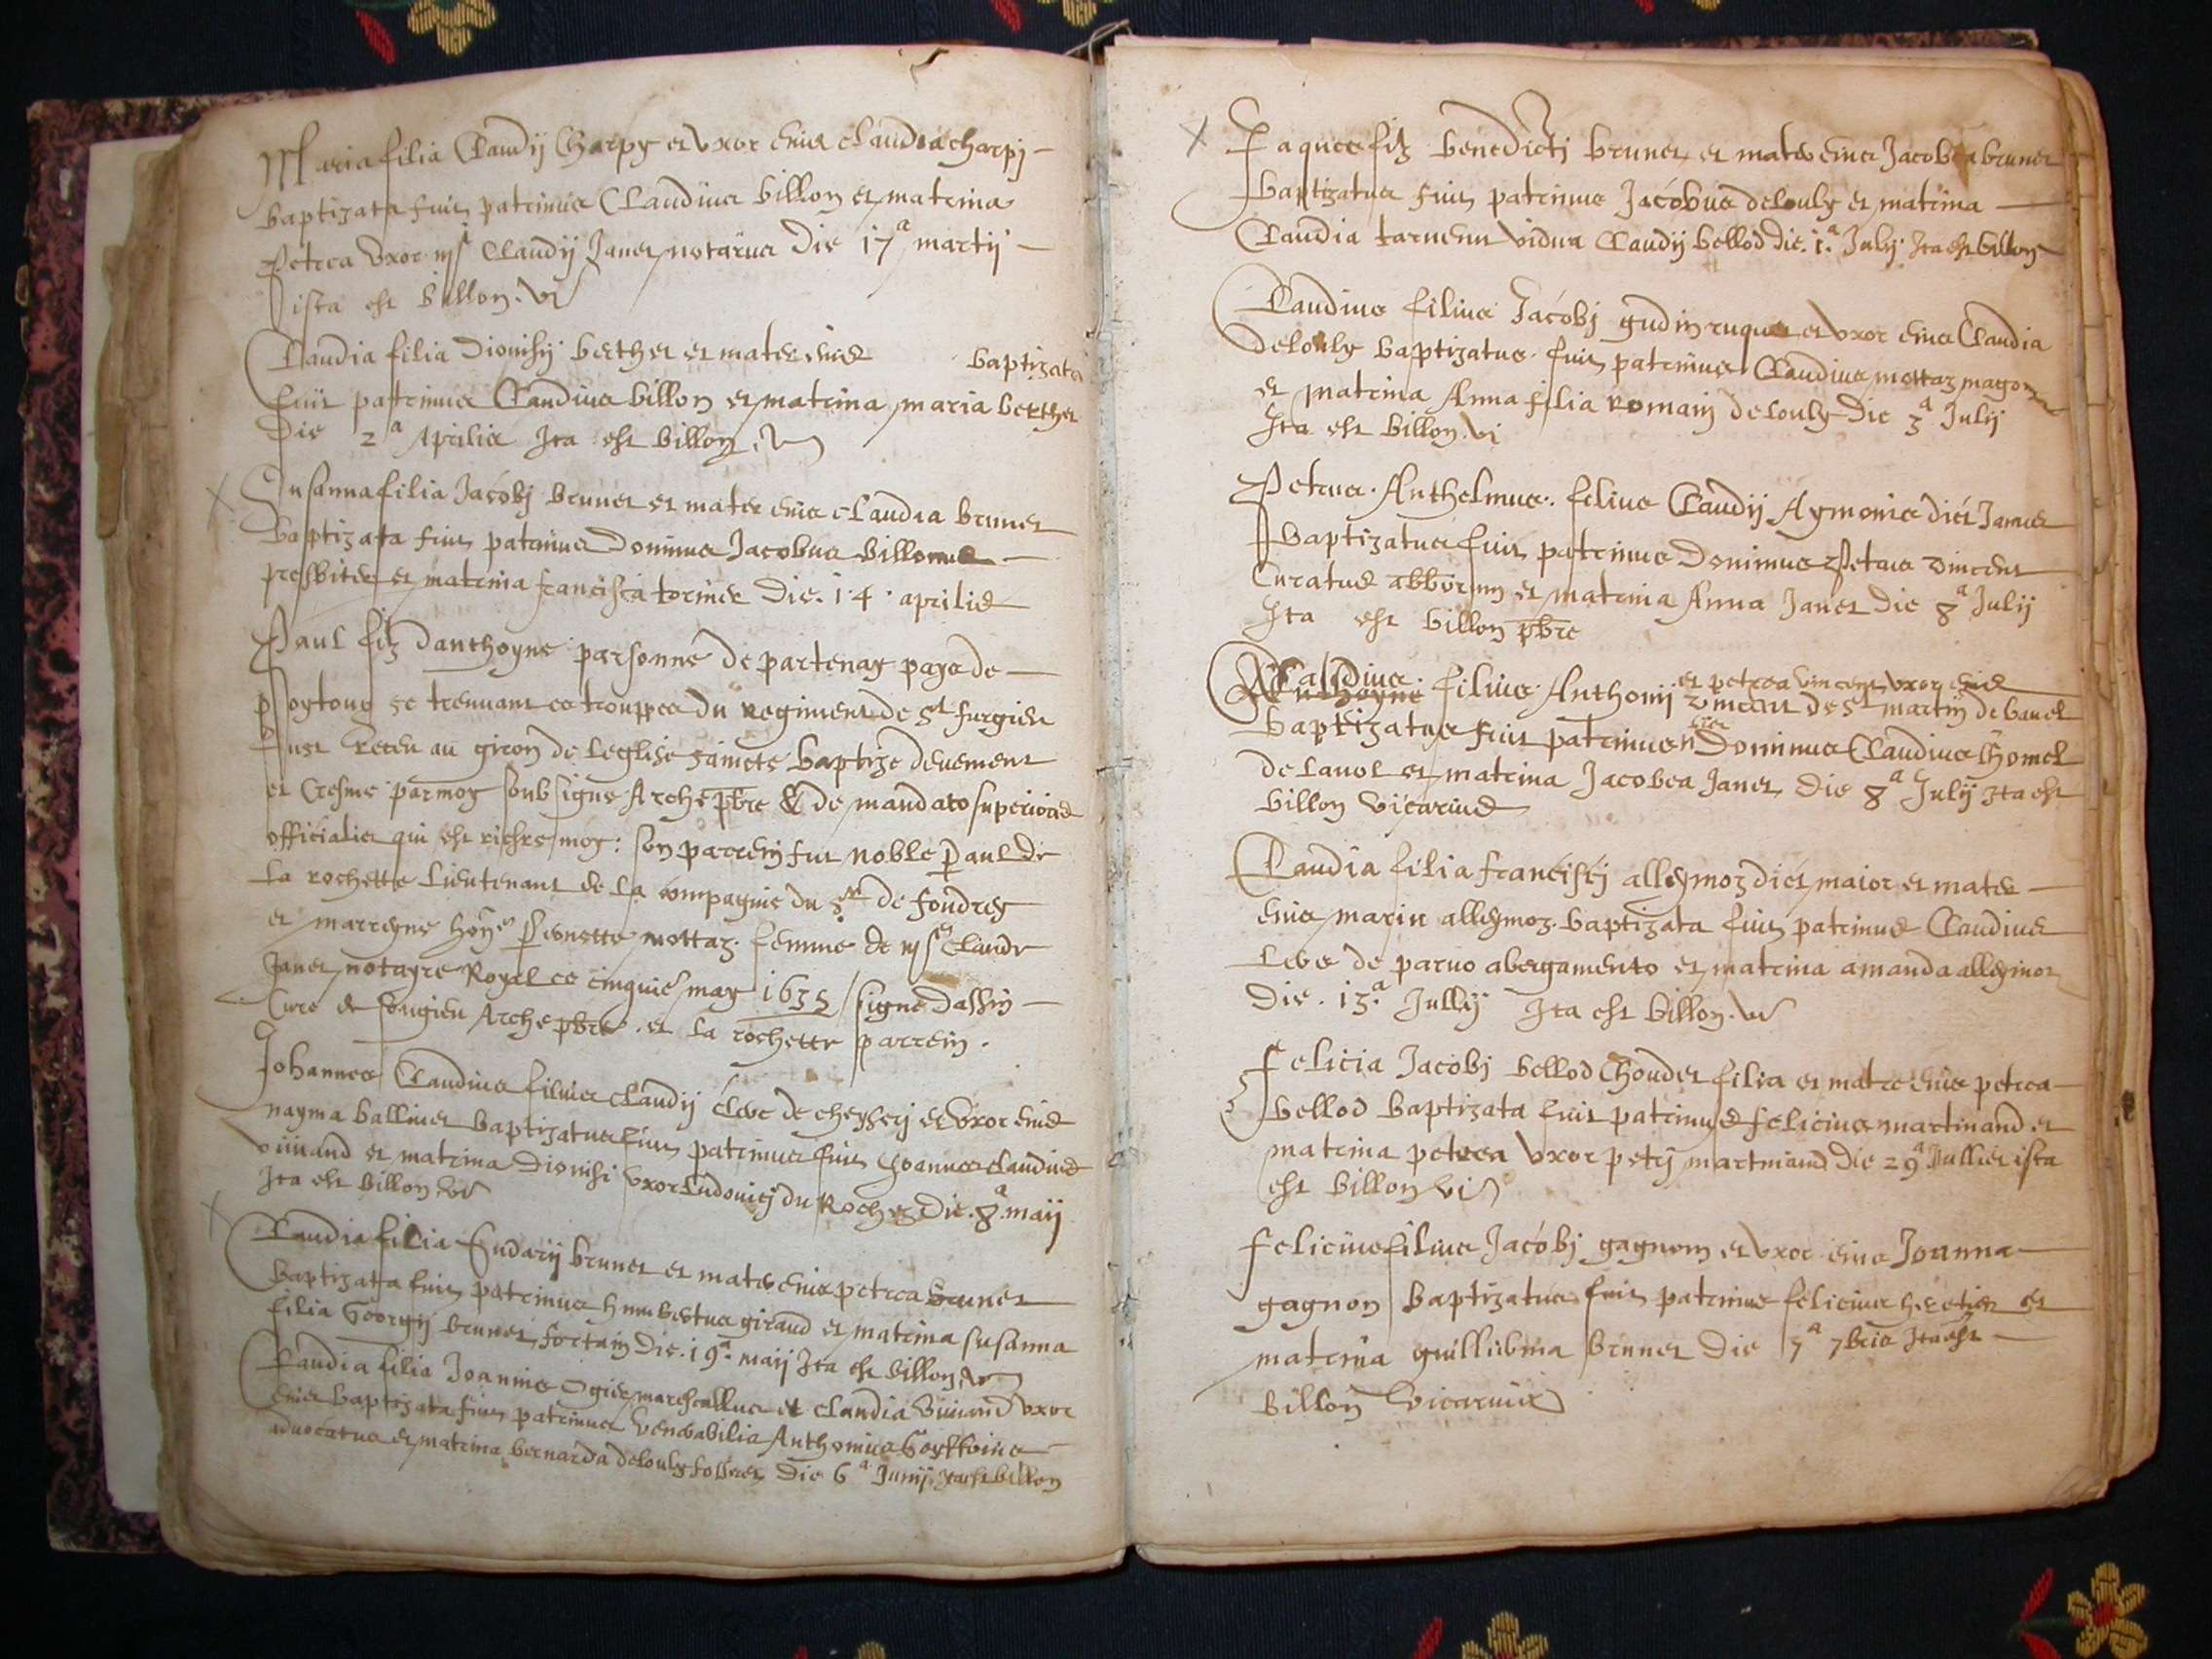 Maria filia Claudij Charpy et uxor eius claudia charpy
baptizata fuit patrinus Claudius billon et matrina
Petrea uxor Claudij Janet notarius die 17a martij
ista est billon
Claudia filia dionisij berthet et mater eius baptizata
fuit patrinus Claudius billon et matrina maria berthet
die 2a Aprilis Ita est billon
Susanna filia Jacobj brunet et mater eius claudia brunet
baptizata fuit patrinus dominus Jacobus billonus
presbiter et matrina francisca die. 14. aprilis
Paul filz danthoyne parsonne de partenay pays de
poytoug se trenuant es trouppes du regiment de St furgieu
fust receu au giron de leglise saincte baptize deuement
et Cresme par moy soubsigne Archepbre & de mandato superioris
officialis qui est riesre moy: son parrein fut noble Paul de
la rochette Lieutenant de la compagnie du Sr de foudrey
et marreyne mottaz. femme de Claude
Janet notayre Royal ce cinquie may 1635 / signe dassin
Cure de Archepbre. et la rochette parrein.
Johannes Claudius filius claudij de cheyserj et uxor eius
nayma balliuet baptizatus fuit patrinus fuit Joannes claudius
uiuiand et matrina dionisi uxor Ludouicj du Rochez die. 8a. maij
Ita est billon
Claudia filia Sudarij brunet et mater eius petrea brunet
baptizata fuit patrinus humbertus giraud et matrina susanna
filia Georgij brunet die. 19a. maij Ita est billon
Claudia filia Joannis Ogier marescallus et claudia Viuiand uxor
eius baptizata fuit patrinus venerabilis Anthonius
aduocatus et matrina bernarda delouly die 6a Junij. Ita est billon
Jaques filz benedictj brunet et mater eius Jacobea brunet
baptizatus fuit patrinus Jacobus delouly et matrina
Claudia vidua Claudij bellod die. 1.a July Ita est billon
Claudius filius Jacobj gudin et uxor eius Claudia
delouly baptizatus. fuit patrinus Claudius mottaz
et matrina Anna filia romanj delouly die 3a Julij
Ita est billon. vi
Petrus. Anthelmus. filius Claudij Aymonis dict Janus
baptizatus fuit patrinus dominus Petrus vincent
Curatus et matrina Anna Janet die 8a Julij
Ita est billon pbre
Claudius. filius Anthonij et petrea vincent uxor eius
vincent de St martin de bauel
baptizatus fuit patrinus dominus Claudius Chomel
de lauol et matrina Jacobea Janet die 8a Julij Ita est
billon vicarius
Claudia filia francisçj alleymoz dict maior et mater
eius maria alleymoz. baptizata fuit patrinus Claudius
de paruo abergamento et matrina amanda alleymoz
die. 13.a Jullij Ita est billon. vi
felicia Jacobj bellod Choudet filia et mater eius petrea
bellod baptizata fuit patrinus felicius martinand et
matrina petrea uxor petrj martinand die 29a Jullier ista
est billon vi
felicius filius Jacobj gagnom et uxor eius Joanna
gagnon baptizatus fuit patrinus felicius heretier et
matrina guillelmina brunet die 7a 7bris Ita est
billon vicarius